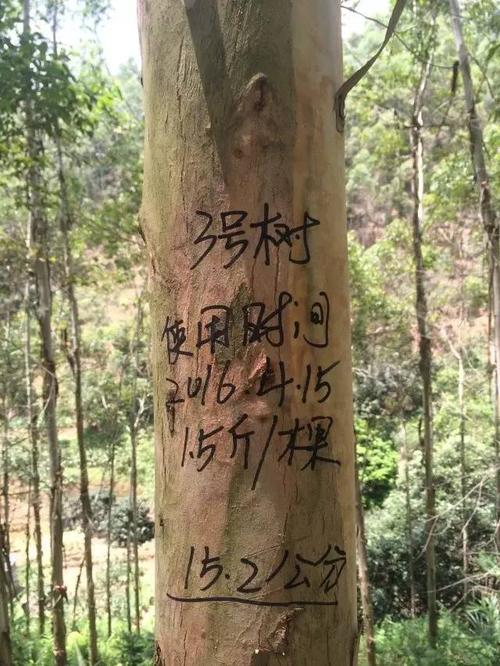 3号树
使用时间
2016.4.15
1.5斤/棵
15.2公分